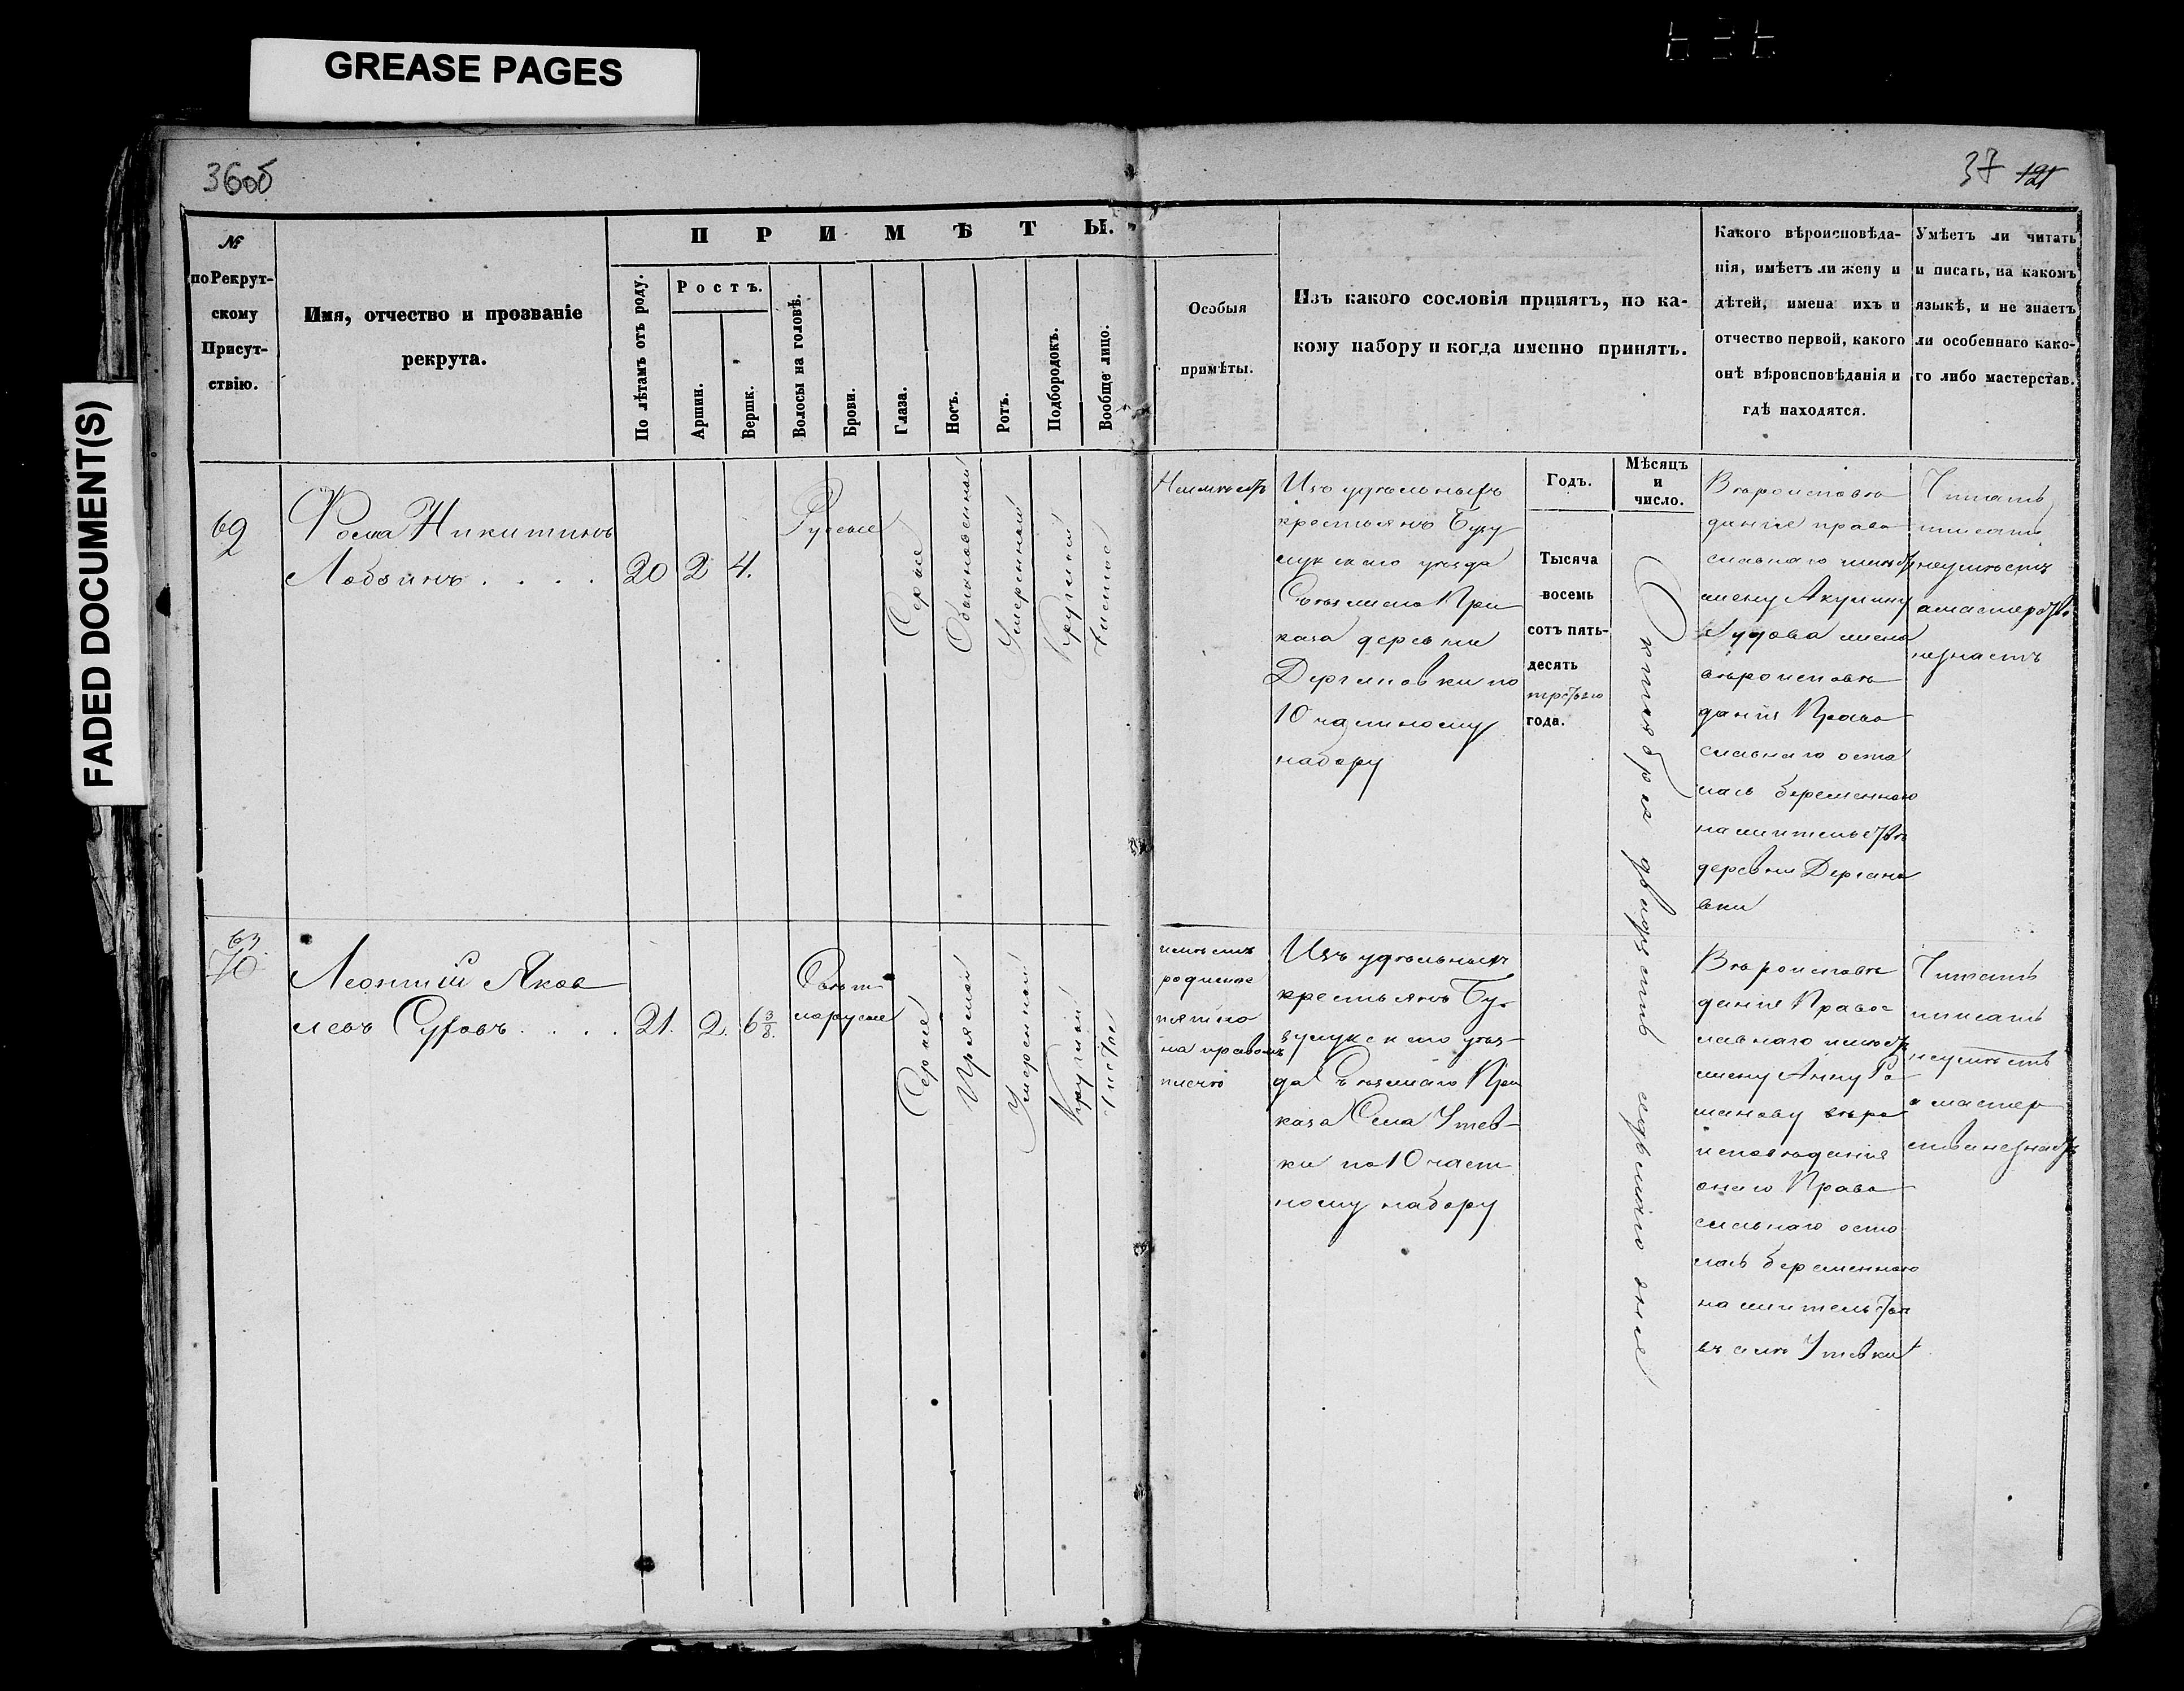 GREASE PAGES
FADED DOCUMENT(S)
36об
37 121
№
по Рекрут-
скому
Присут-
ствію.
Имя, отчество и прозваніе
рекрута.
ПРИМѢТЫ.
По лѣтамъ отъ роду.
Ростъ.
Аршин.
Вершк.
Волосы на головѣ.
Брови.
Глаза.
Носъ.
Ротъ.
Подбородокъ.
Вообще лицо.
Особыя
примѣты.
Изъ какого сословія принятъ, по ка-
кому набору и когда именно принятъ.
Какого вѣроисповѣда-
нія, имѣетъ ли жену и
дѣтей, имена ихъ и
отчество первой, какого
онѣ вѣроисповѣданія и
гдѣ находятся.
Умѣетъ ли читать
и писать, на какомъ
языкѣ, и не знаетъ
ли особеннаго како-
го либо мастерстав.
69
Фома Никитинъ
Лобзинъ . . . .
20
2
4.
Русые
Серые
Обыкновенной
Умеренный
Круглый
Чистое
Неимѣетъ
Изъ удѣльныхъ
крестьянъ Бузу
лукскаго уѣзда
Съѣзжаго При
каза деревни
Дергановки по
10 частному
набору
Годъ.
Тысяча
восемь
сотъ пять-
десять
третьяго
года.
Мѣсяцъ
и
число.
Октября двадцать седьмаго дня
Вѣроисповѣ
данія право
славнаго имѣетъ
жену Акулину
вѣроисповѣ
данія Право
славнаго оста
лась беременною
на жительствѣ
деревни Дергано
вки
Читать
писать
неумѣетъ
а мастерства
незнаетъ
70
Леонтій Яков
левъ Суховъ . . . .
21.
2.
6 3/8.
Свѣт
лорусые
Серые
Прямой
Умеренной
Круглой
Чистое
имѣетъ
родимое
пятно
на правомъ
плечѣ
Изъ удѣльныхъ
крестьянъ Бу-
зулукскаго уѣз-
да Съѣзжаго При
каза Села Утев-
ки по 10 част
ному набору
Вѣроисповѣ
данія Правос
лавнаго имѣетъ
жену Анну Ро
манову вѣро
исповѣданія
онаго Право
славнаго оста
лась беременною
на жительствѣ
въ селѣ Утевки
Читать
писать
неумѣетъ
а мастер
ства незнаетъ